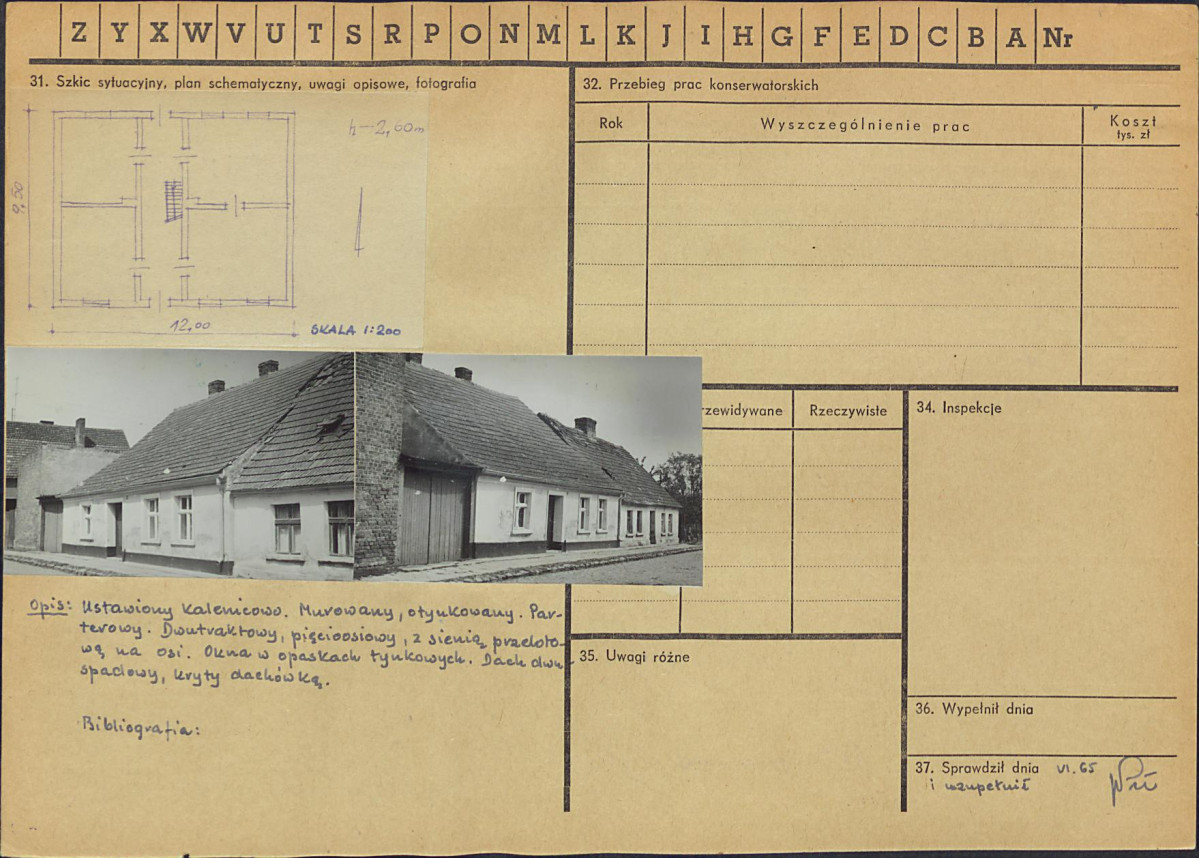 Z Y X W V U T S R P O N M L K J I H G F E D C B A Nr
31. Szkic sytuacyjny, plan schematyczny, uwagi opisowe, fotografia
h-2,60m
9,50
12,00
SKALA 1:200
Opis: Ustawiony kalenicowo. Murowany, otynkowany. Par-
terowy. Dwutraktowy, pięcioosiowy, z sienią przeloto-
wą na osi. Okna w opaskach tynkowych. Dach dwu-
spadowy, kryty dachówką.
Bibliografia:
32. Przebieg prac konserwatorskich
Rok
Wyszczególnienie prac
Koszt
tys. zł
rzewidywane
Rzeczywiste
34. Inspekcje
35. Uwagi różne
36. Wypełnił dnia
37. Sprawdził dnia VI.65
i uzupełnił